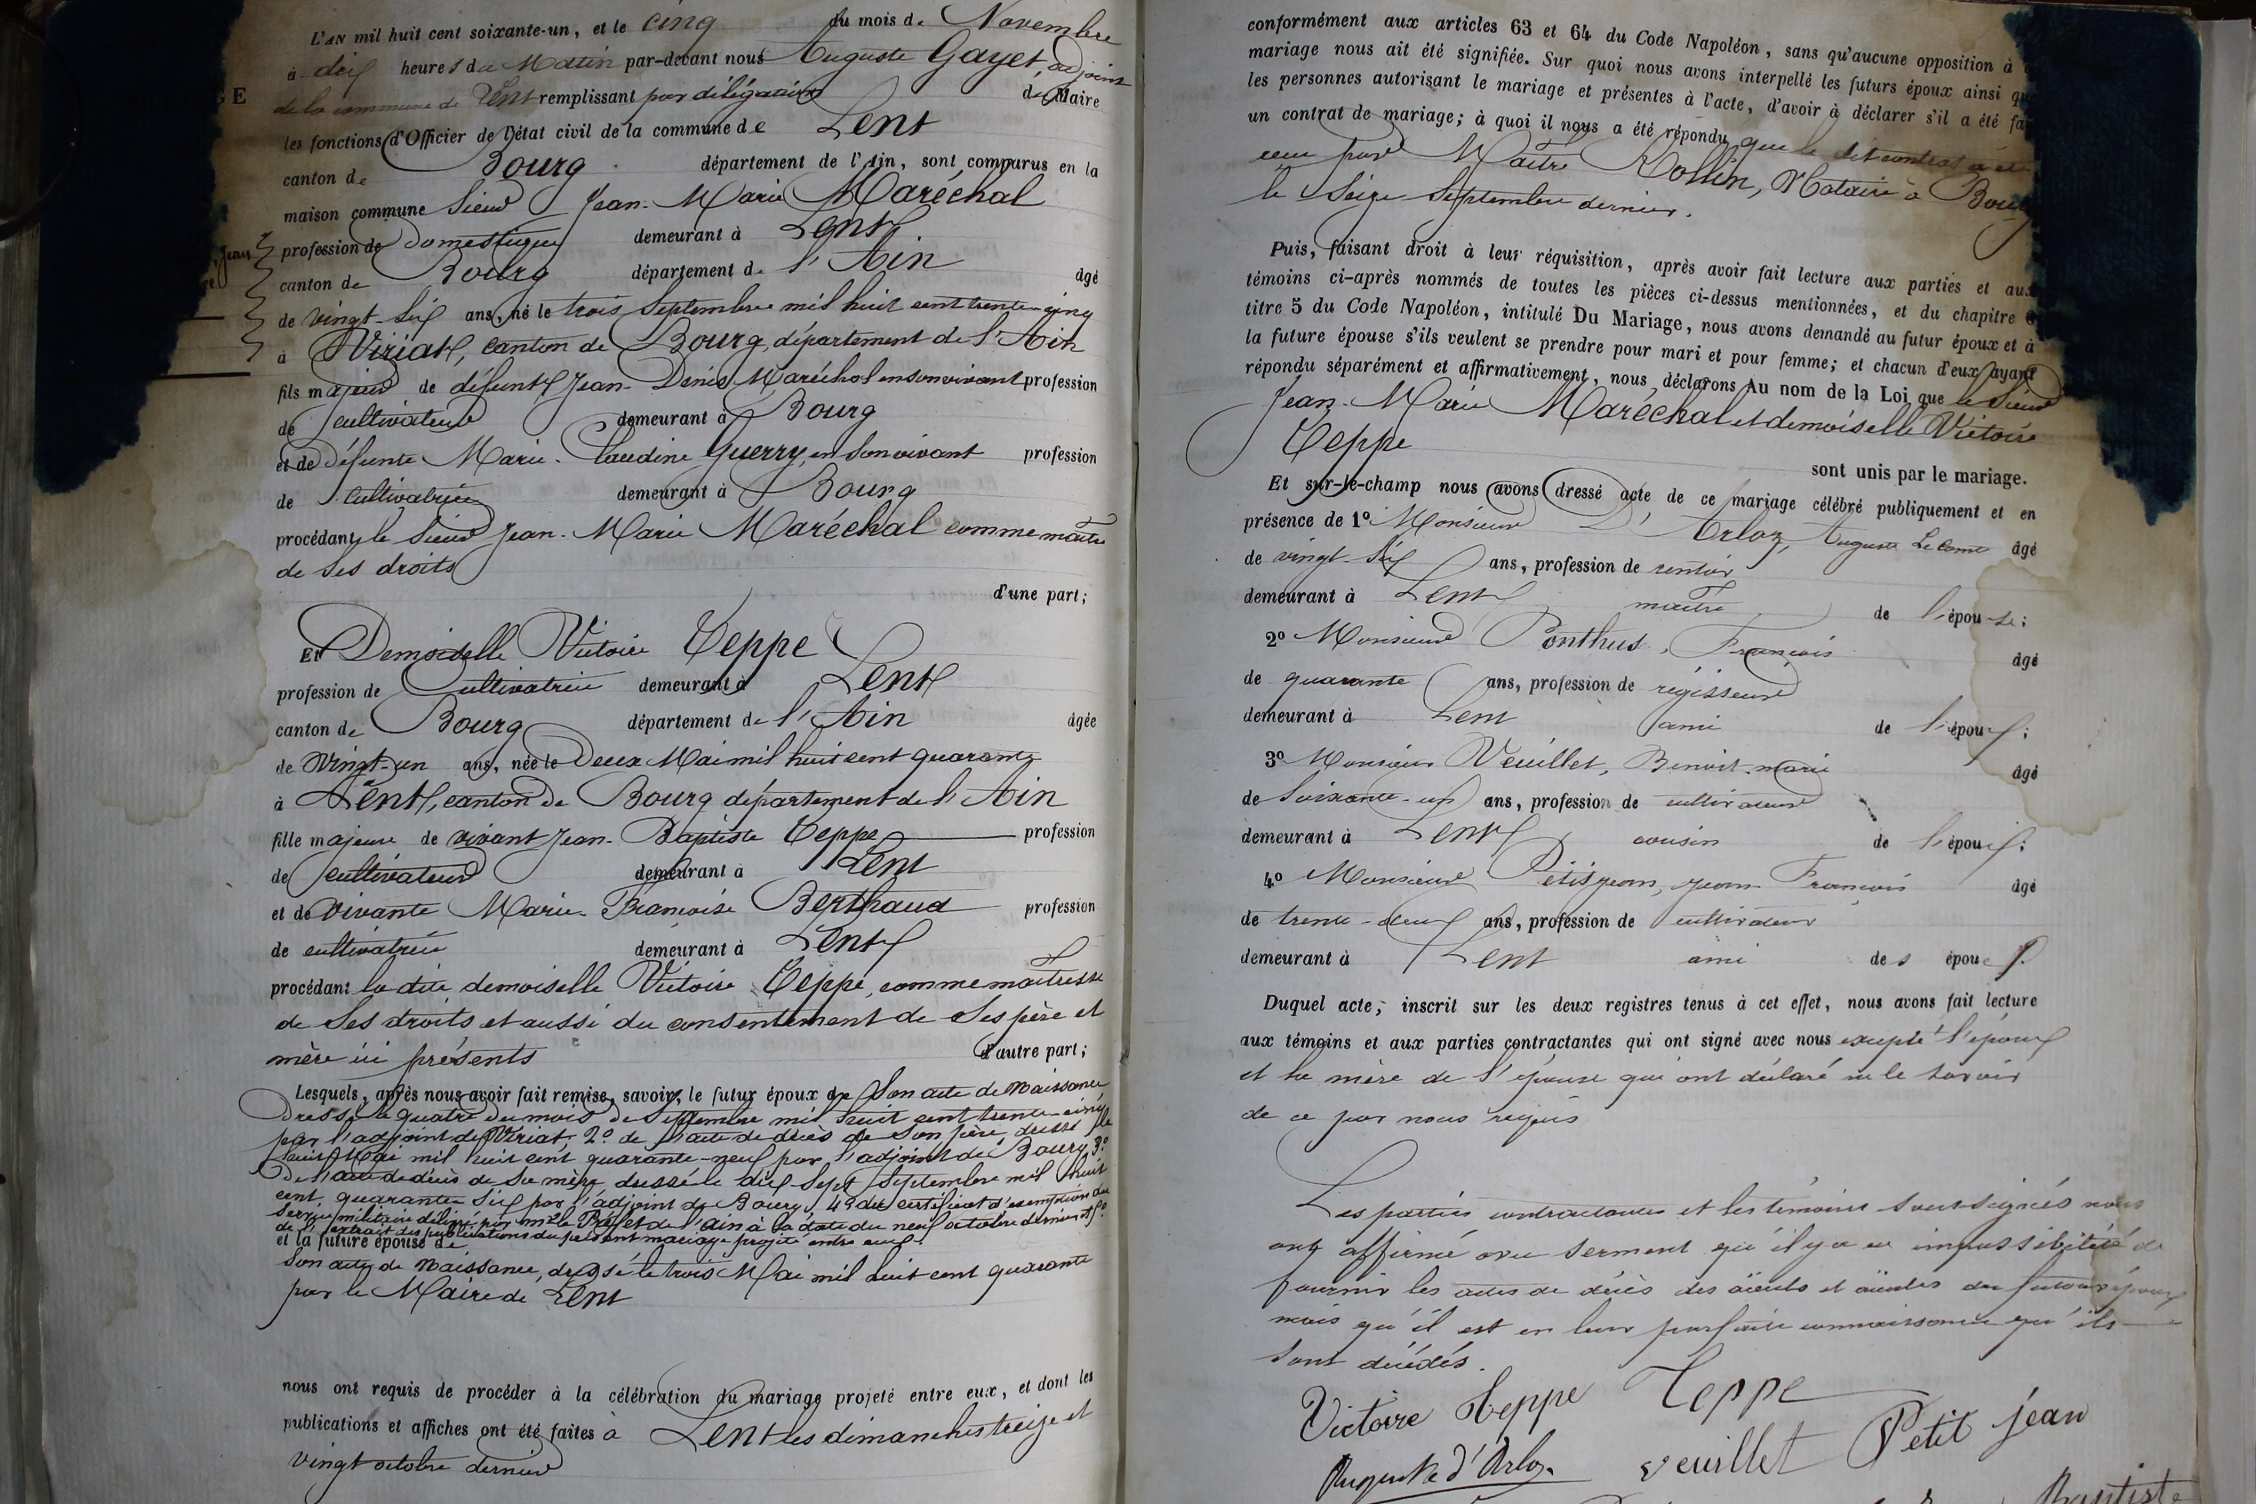 L'AN mil huit cent soixante-un, et le cinq du mois de Novembre
à dix heures du Matin par-devant nous Auguste Gayet, adjoint
de la commune de Lent remplissant par délégation du Maire
GE
les fonctions d'Officier de l'état civil de la commune de Lent
canton de Bourg département de l'Ain, sont comparus en la
maison commune Sieur Jean-Marie Maréchal
profession de Domestique demeurant à Lent
Jean
canton de Bourg département de l'Ain âgé
de vingt-six ans, né le trois Septembre mil huit cent trente-cinq
à Viriat, canton de Bourg, département de l'Ain
fils majeur de défunt Jean-Denis Maréchal en son vivant profession
de cultivateur demeurant à Bourg
et de Défunte Marie-Claudine Guerry, en son vivant profession
de cultivatrice demeurant à Bourg
procédant le Sieur Jean-Marie Maréchal comme maître
de ses droits
d'une part;
ET Demoiselle Victoire Teppe
profession de cultivatrice demeurant à Lent
canton de Bourg département de l'Ain âgée
de vingt-un ans, née le Deux Mai mil huit cent quarante
à Lent, canton de Bourg département de l'Ain
fille majeure de vivant Jean-Baptiste Teppe profession
de cultivateur demeurant à Lent
et de vivante Marie-Françoise Berthaud profession
de cultivatrice demeurant à Lent
procédant la dite demoiselle Victoire Teppe, comme maîtresse
de ses droits et aussi du consentement de ses père et
mère ici présents d'autre part;
Lesquels, après nous avoir fait remise, savoir, le futur époux de son acte de Naissance
dressé le quatre du mois de Septembre mil huit cent trente-cinq
par l'adjoint de Viriat, 2° de l'acte de décès de son père, dressé le
huit Mai mil huit cent quarante-neuf par l'adjoint de Bourg, 3°
De l'acte de décès de sa mère, dressé le dix Sept Septembre mil huit
cent quarante six par l'adjoint de Bourg, 4° du certificat d'exemption du
service militaire délivré par Mr le Préfet de l'Ain à la date du neuf octobre dernier et 5°
de l'extrait des publications du présent mariage projeté entre eux.
et la future épouse de
son acte de Naissance, dressé le trois Mai mil huit cent quarante
par le Maire de Lent
nous ont requis de procéder à la célébration du mariage projeté entre eux, et dont les
publications et affiches ont été faites à Lent les dimanches treize et
vingt octobre dernier
conformément aux articles 63 et 64 du Code Napoléon, sans qu'aucune opposition à
mariage nous ait été signifiée. Sur quoi nous avons interpellé les futurs époux ainsi
les personnes autorisant le mariage et présentes à l'acte, d'avoir à déclarer s'il a été
un contrat de mariage; à quoi il nous a été répondu que le dit contrat a été
reçu par Maître Rollin, Notaire à Bourg
le Seize Septembre dernier.
Puis, faisant droit à leur réquisition, après avoir fait lecture aux parties et aux
témoins ci-après nommés de toutes les pièces ci-dessus mentionnées, et du chapitre 6
titre 5 du Code Napoléon, intitulé Du Mariage, nous avons demandé au futur époux et à
la future épouse s'ils veulent se prendre pour mari et pour femme; et chacun d'eux ayant
répondu séparément et affirmativement, nous déclarons Au nom de la Loi que le Sieur
Jean-Marie Maréchal et demoiselle Victoire
Teppe
sont unis par le mariage.
Et sur-le-champ nous avons dressé acte de ce mariage célébré publiquement et en
présence de 1° Monsieur D'Arloz, Auguste Le Comte âgé
de vingt-six ans, profession de rentier
demeurant à Lent maître de l'épouse;
2° Monsieur Ponthus, François âgé
de quarante ans, profession de régisseur
demeurant à Lent ami de l'époux;
3° Monsieur Veuillet, Benoit-marie âgé
de soixante-un ans, profession de cultivateur
demeurant à Lent cousin de l'époux;
4° Monsieur Petitjean, Jean-François âgé
de trente-deux ans, profession de cultivateur
demeurant à Lent ami des époux.
Duquel acte, inscrit sur les deux registres tenus à cet effet, nous avons fait lecture
aux témoins et aux parties contractantes qui ont signé avec nous excepté l'époux
et la mère de l'épouse qui ont déclaré ne le savoir
de ce par nous requis
Les parties contractantes et les témoins soussignés nous
ont affirmé avec serment qu'il y a eu impossibilité de
fournir les actes de décès des aïeuls et aïeules du futur époux
mais qu'il est en leur parfaite connaissance qu'ils
sont décédés.
Victoire Teppe Teppe
Auguste d'Arloz veuillet Petit jean
Baptiste